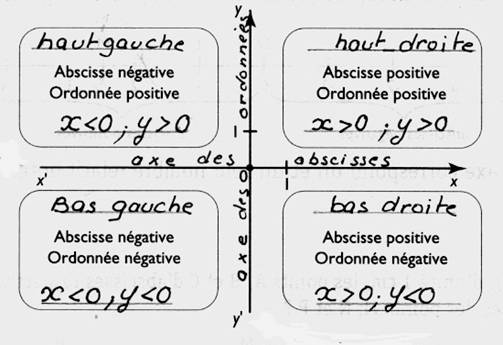 y
haut gauche
Abscisse négative
Ordonnée positive
x<0 ; y>0
haut droite
Abscisse positive
Ordonnée positive
x>0 ; y>0
axe des ordonnées
1
axe des abscisses
x'
0
1
x
Bas gauche
Abscisse négative
Ordonnée négative
x<0, y<0
bas droite
Abscisse positive
Ordonnée négative
x>0; y<0
y'